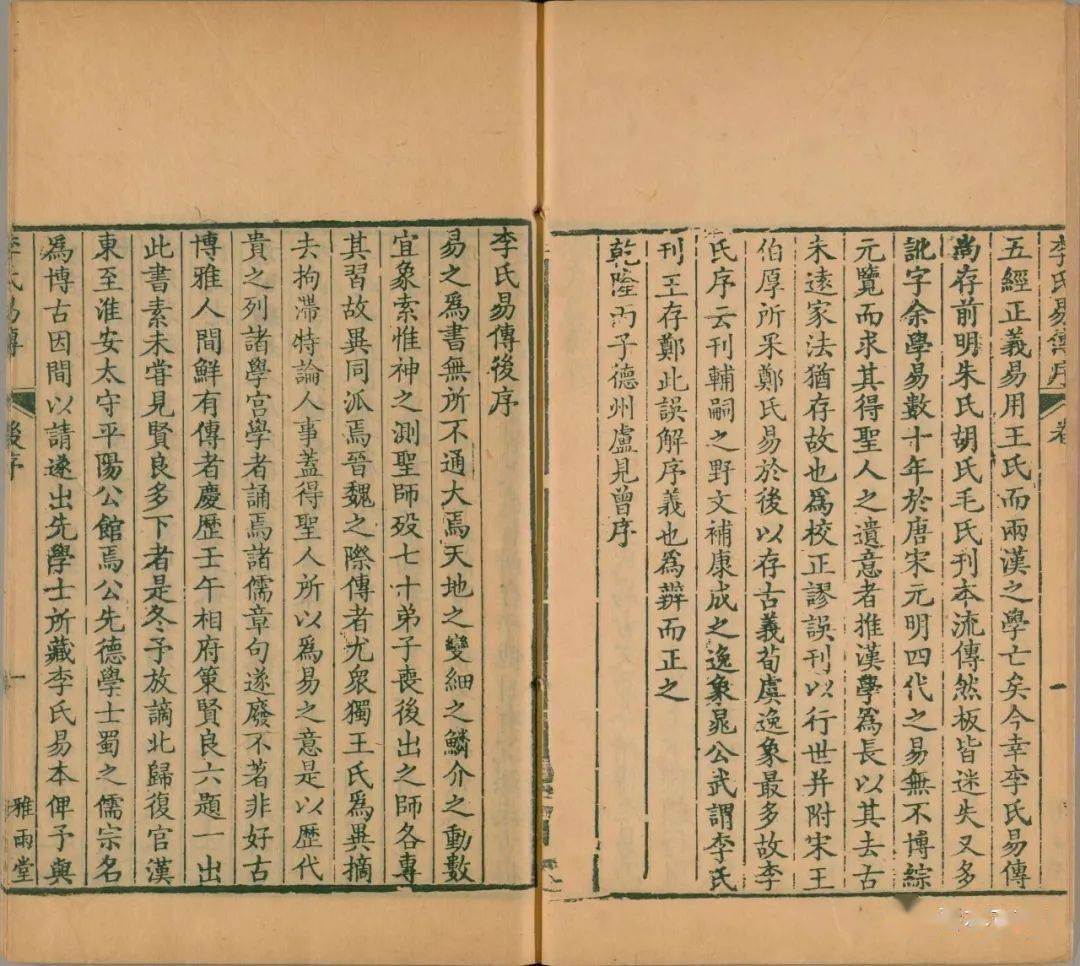 李氏易傳序 卷 一
五經正義易用王氏而兩漢之學亡矣今幸李氏易傳
尚存前明朱氏胡氏毛氏刊本流傳然板皆迷失又多
訛字余學易數十年於唐宋元明四代之易無不博綜
元覽而求其得聖人之遺意者推漢學為長以其去古
未遠家法猶存故也為校正謬誤刊以行世并附宋王
伯厚所采鄭氏易於後以存古義荀虞逸象最多故李
氏序云刊輔嗣之野文補康成之逸象晁公武謂李氏
刊王存鄭此誤解序義也為辨而正之
乾隆丙子德州盧見曾序
李氏易傳後序
易之為書無所不通大焉天地之變細之鱗介之動數
宜象索惟神之測聖師歿七十弟子喪後出之師各專
其習故異同派焉晉魏之際傳者尤衆獨王氏為異摘
去拘滯特論人事蓋得聖人所以為易之意是以歷代
貴之列諸學宮學者誦焉諸儒章句遂廢不著非好古
博雅人間鮮有傳者慶歷壬午相府策賢良六題一出
此書素未嘗見賢良多下者是冬予放謫北歸復官漢
東至淮安太守平陽公館焉公先德學士蜀之儒宗名
為博古因間以請遂出先學士所藏李氏易本俾予與
李氏易傳 後序 一 雅雨堂